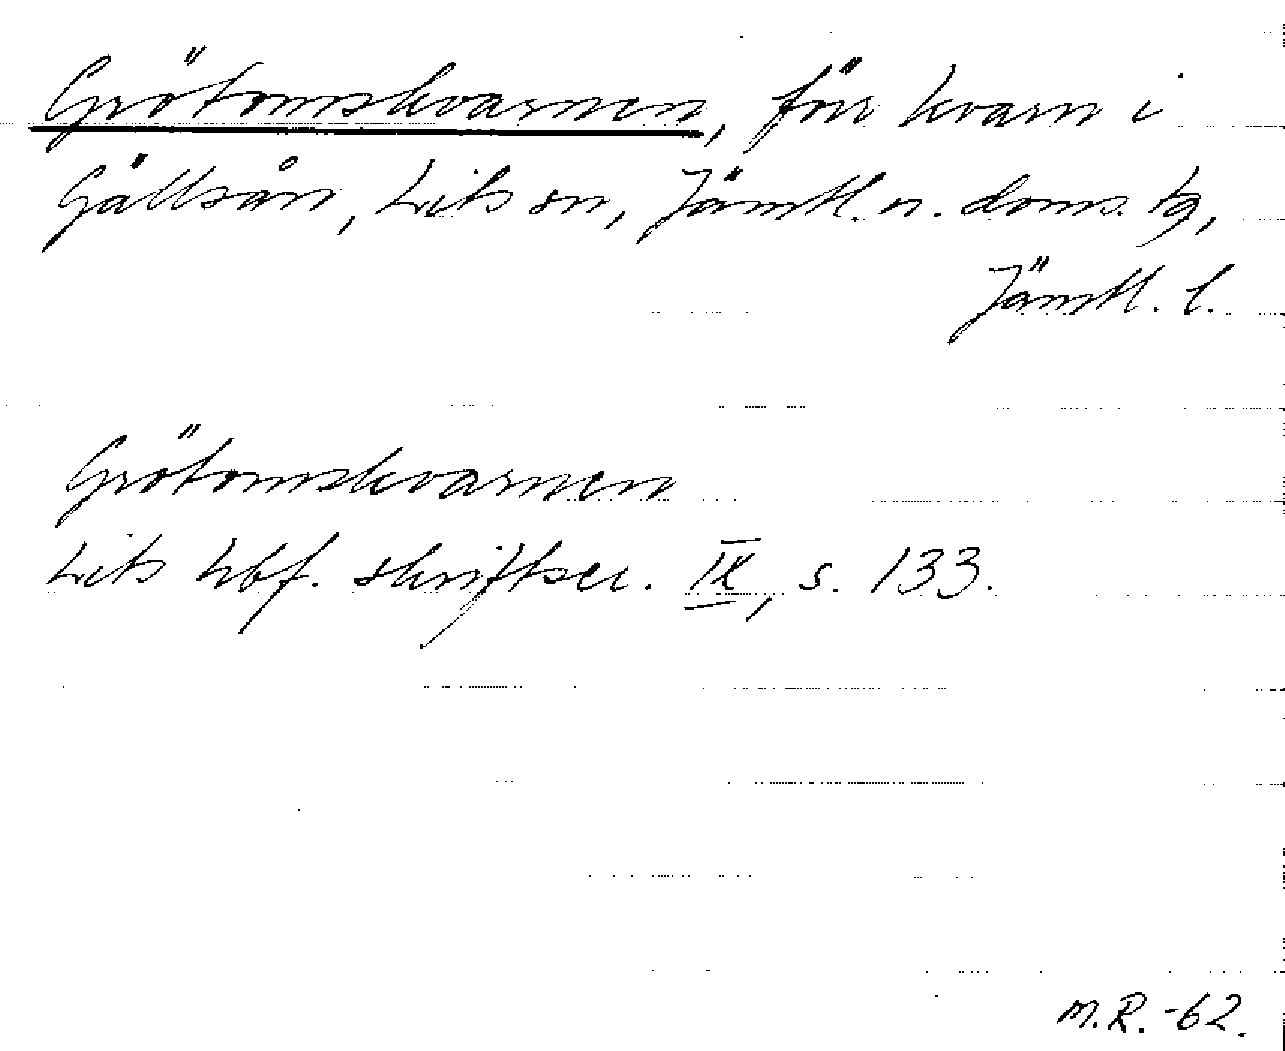 Grötomskvarnen, förr kvarn i
Gällsån, Lits sn, Jämtl. n. doms. tg,
Jämtl. l.
Grötomskvarnen
Lits hbf. skriftser. IX, s. 133.
M.R. -62.